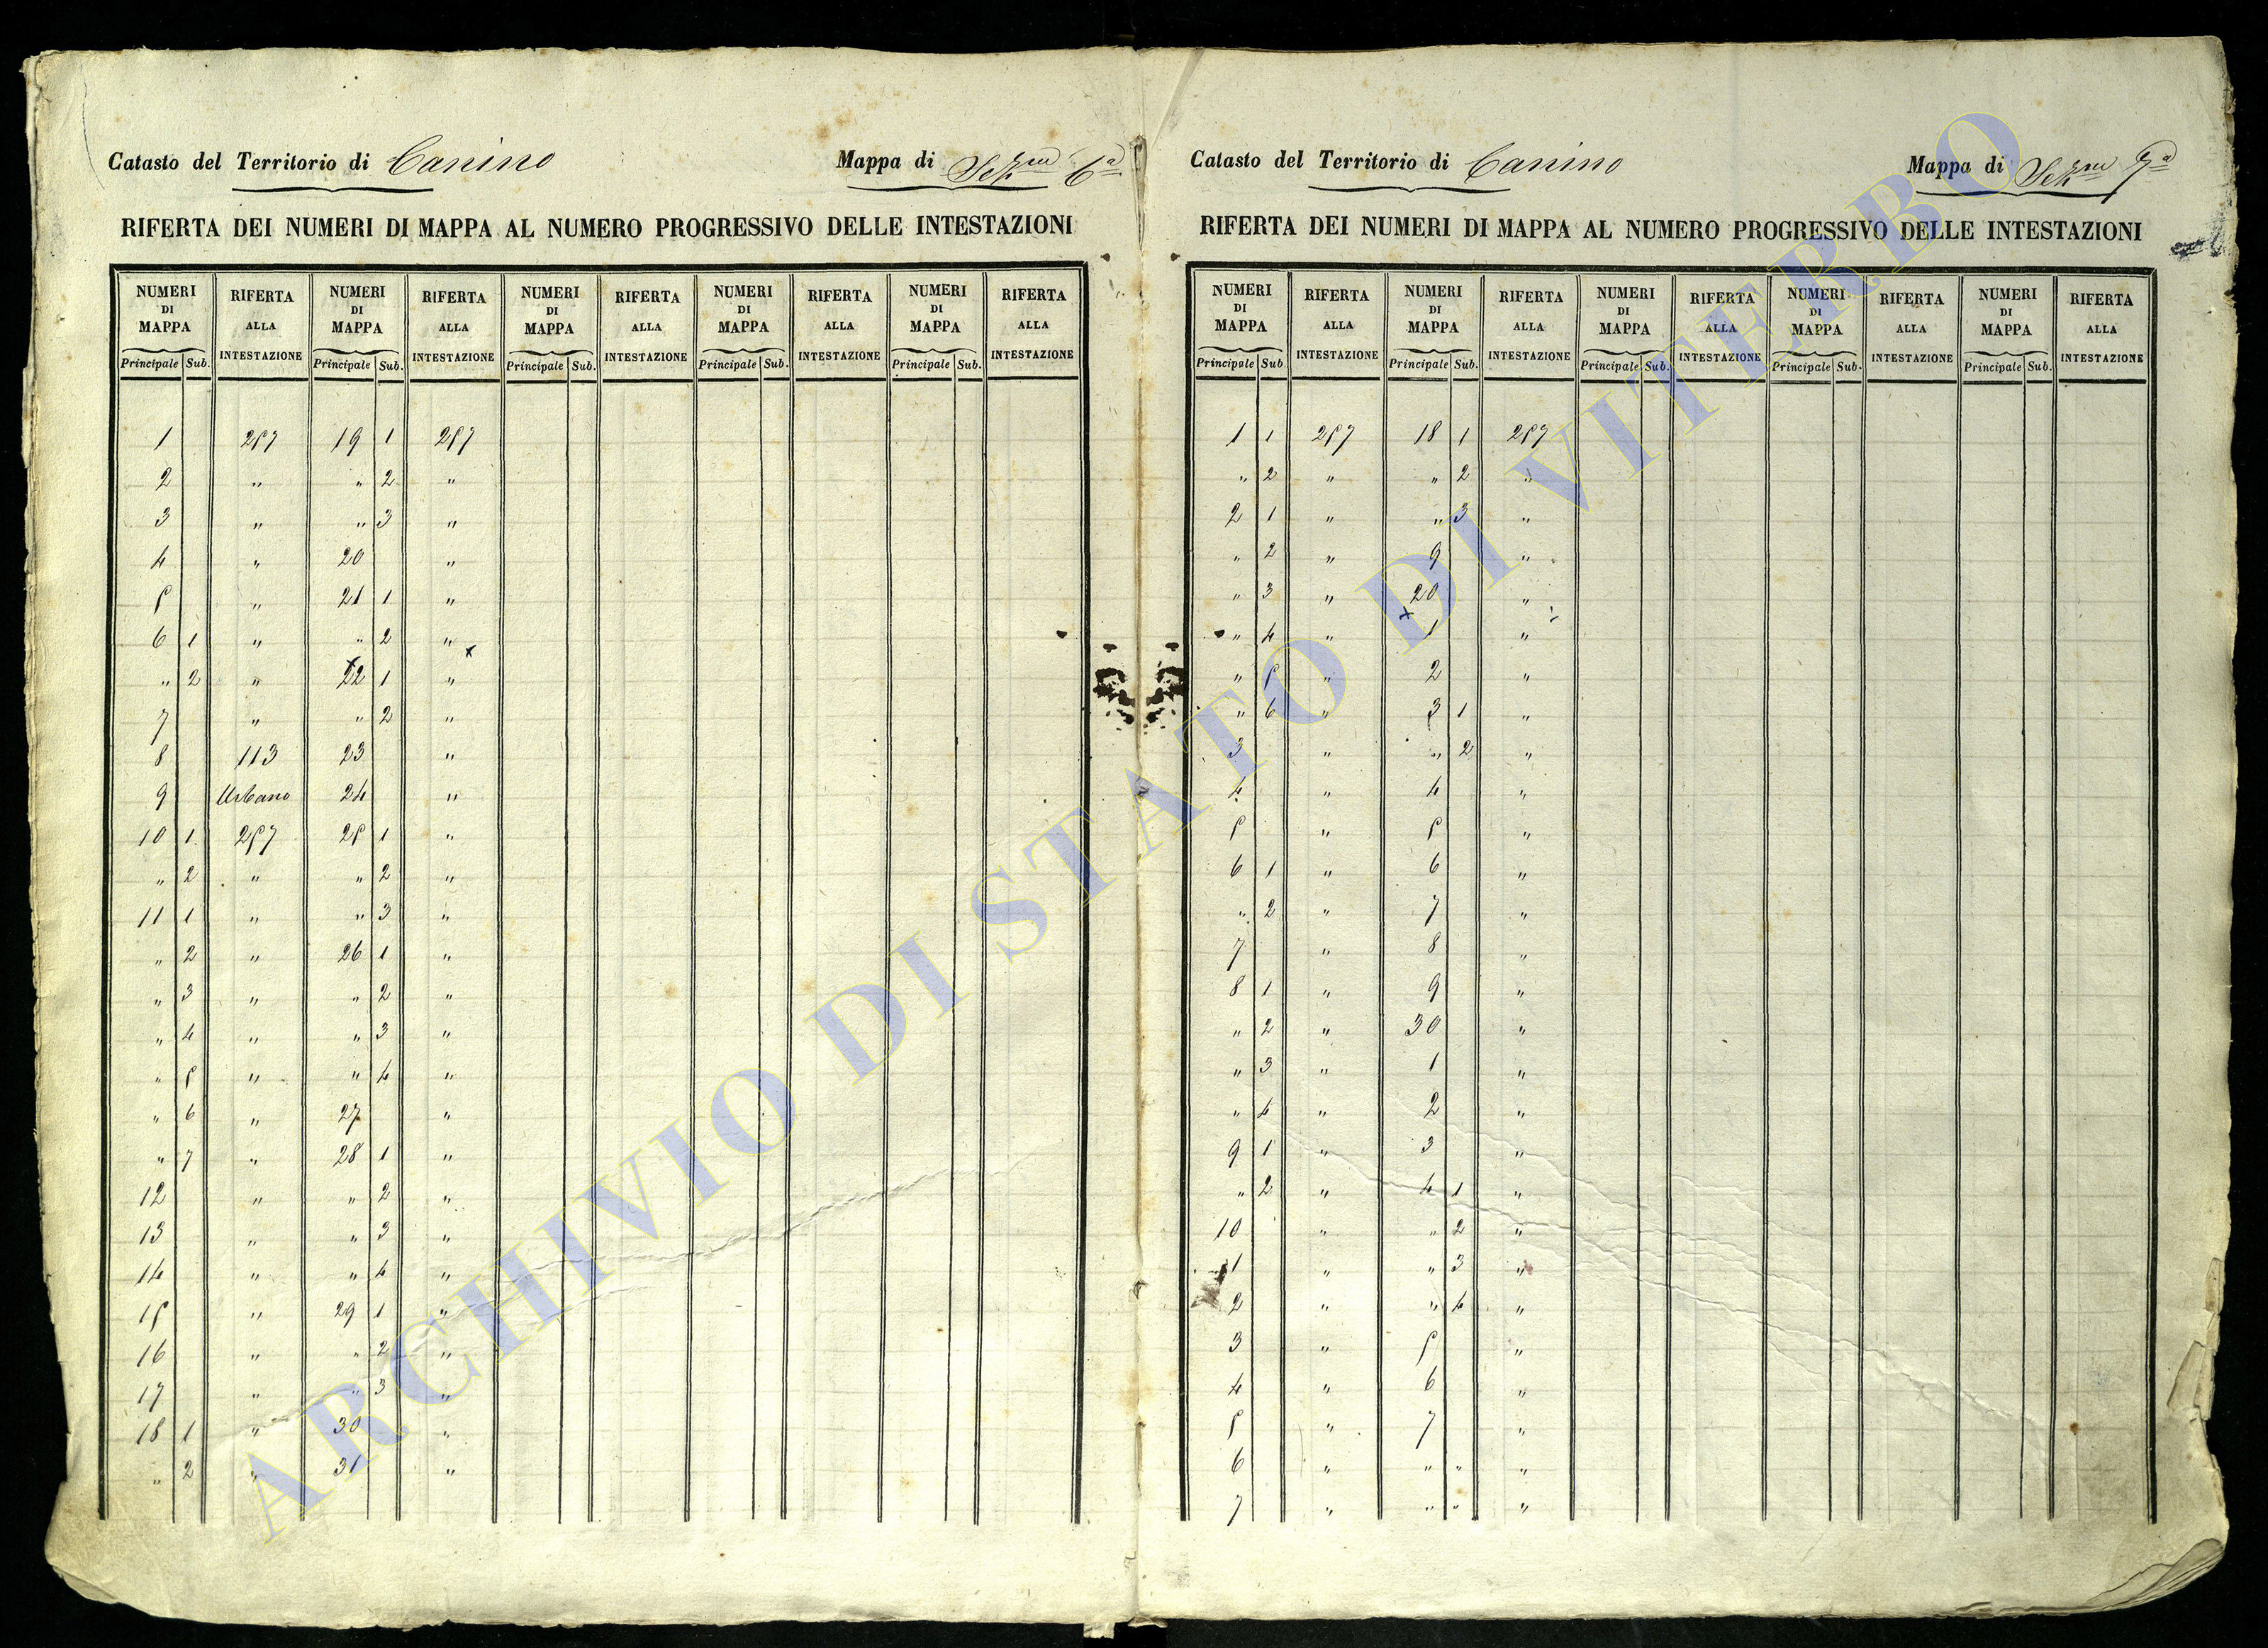 Catasto del Territorio di Canino Mappa di Sez.ne 6a
RIFERTA DEI NUMERI DI MAPPA AL NUMERO PROGRESSIVO DELLE INTESTAZIONI
NUMERI DI MAPPA RIFERTA ALLA INTESTAZIONE NUMERI DI MAPPA RIFERTA ALLA INTESTAZIONE NUMERI DI MAPPA RIFERTA ALLA INTESTAZIONE NUMERI DI MAPPA RIFERTA ALLA INTESTAZIONE NUMERI DI MAPPA RIFERTA ALLA INTESTAZIONE
Principale Sub. Principale Sub. Principale Sub. Principale Sub. Principale Sub.
1 257 19 1 257
2 " " 2 "
3 " " 3 "
4 " 20 "
5 " 21 1 "
6 1 " " 2 " x
" 2 " 22 1 "
7 " " 2 "
8 113 23 "
9 Urbano 24 "
10 1 257 25 1 "
" 2 " " 2 "
11 1 " " 3 "
" 2 " 26 1 "
" 3 " " 2 "
" 4 " " 3 "
" 5 " " 4 "
" 6 " 27 "
" 7 " 28 1 "
12 " " 2 "
13 " " 3 "
14 " " 4 "
15 " 29 1 "
16 " " 2 "
17 " " 3 "
18 1 " 30 "
" 2 " 31 "
Catasto del Territorio di Canino Mappa di Sez.ne 7a
RIFERTA DEI NUMERI DI MAPPA AL NUMERO PROGRESSIVO DELLE INTESTAZIONI
NUMERI DI MAPPA RIFERTA ALLA INTESTAZIONE NUMERI DI MAPPA RIFERTA ALLA INTESTAZIONE NUMERI DI MAPPA RIFERTA ALLA INTESTAZIONE NUMERI DI MAPPA RIFERTA ALLA INTESTAZIONE NUMERI DI MAPPA RIFERTA ALLA INTESTAZIONE
Principale Sub. Principale Sub. Principale Sub. Principale Sub. Principale Sub.
1 1 257 18 1 257
" 2 " " 2 "
2 1 " " 3 "
" 2 " 9 "
" 3 " 20 "
" 4 " x 1 "
" 5 " 2 "
" 6 " 3 1 "
3 " " 2 "
4 " 4 "
5 " 5 "
6 1 " 6 "
" 2 " 7 "
7 " 8 "
8 1 " 9 "
" 2 " 30 "
" 3 " 1 "
" 4 " 2 "
9 1 " 3 "
" 2 " 4 1 "
10 " " 2 "
1 " " 3 "
2 " " 4 "
3 " 5 "
4 " 6 "
5 " 7 "
6 " " " "
7 " " " "
ARCHIVIO DI STATO DI VITERBO